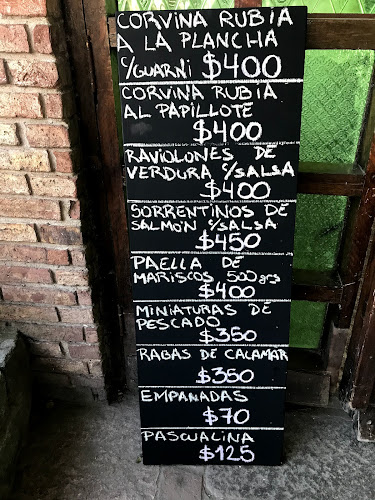 CORVINA RUBIA
A LA PLANCHA
C/GUARNI $400
CORVINA RUBIA
AL PAPILLOTE
$400
RAVIOLONES DE
VERDURA C/SALSA
$400
SORRENTINOS DE
SALMÓN C/SALSA
$450
PAELLA DE
MARISCOS 500grs
$400
MINIATURAS DE
PESCADO
$350
RABAS DE CALAMAR
$350
EMPANADAS
$70
PASCUALINA
$125